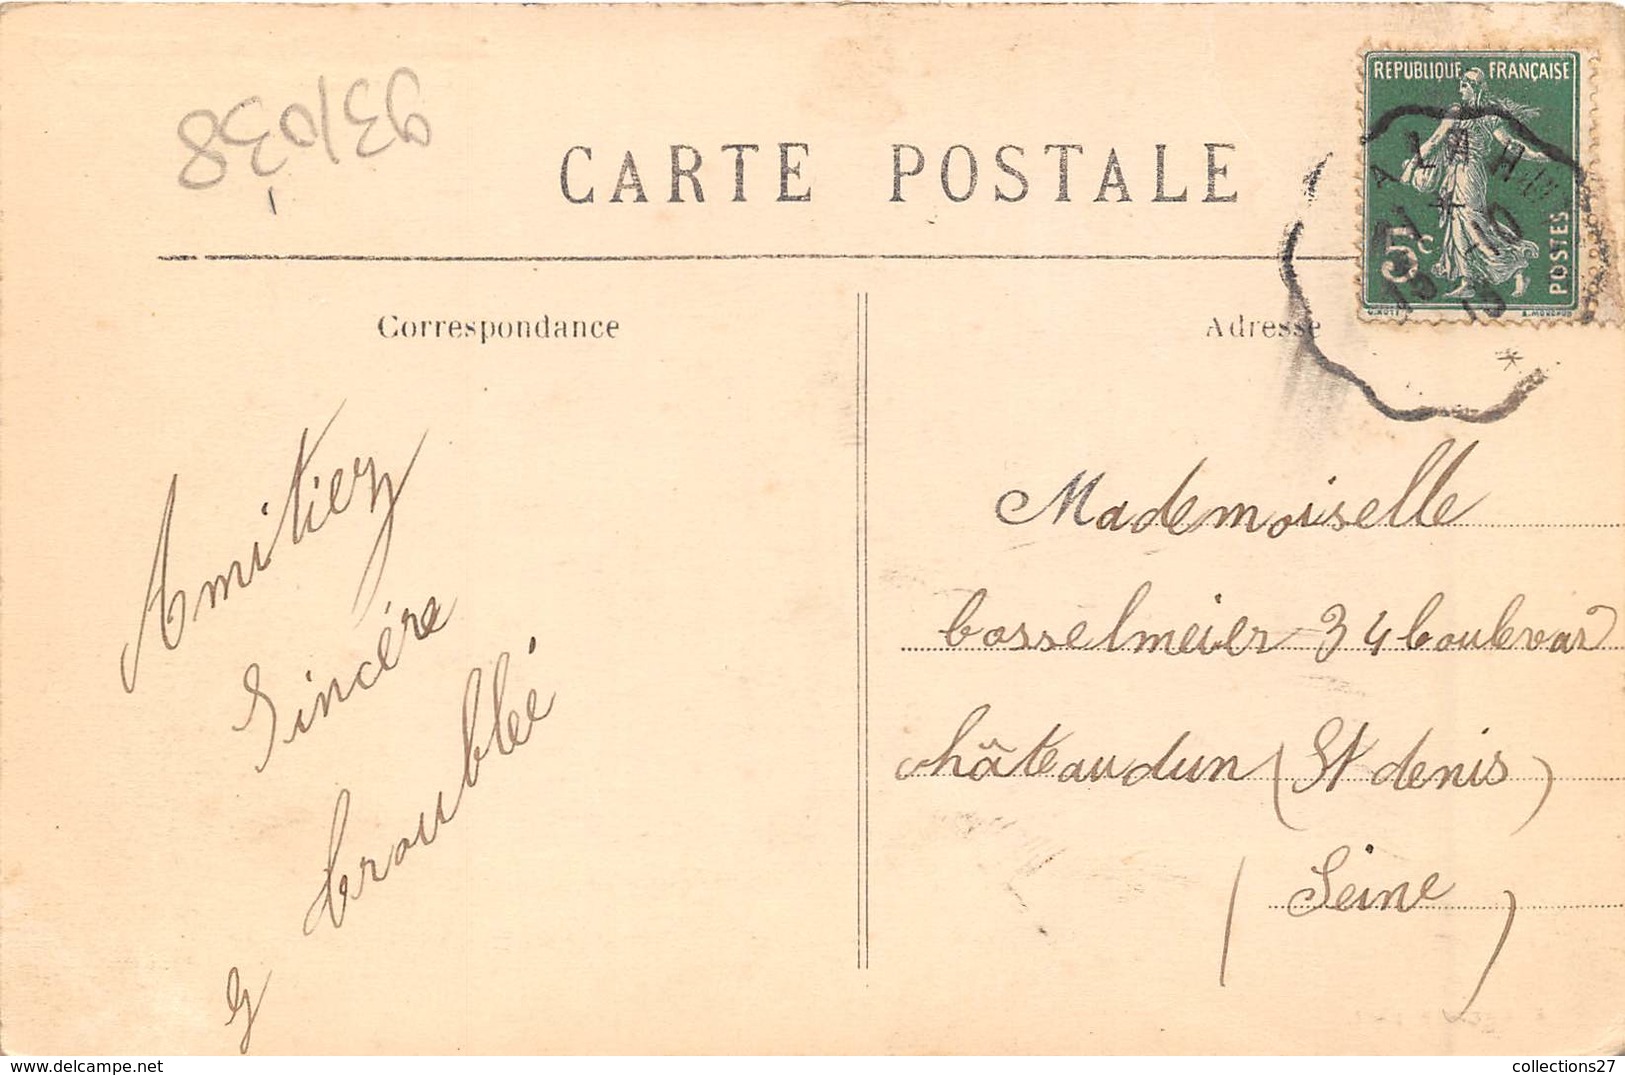 93/038
CARTE POSTALE
REPUBLIQUE FRANÇAISE
5c
POSTES
Correspondance
Adresse
Amitiez
Sincére
troublée
Mademoiselle
bosselmeier 34 boulevar
châteaudun (St denis)
(Seine)
collections27